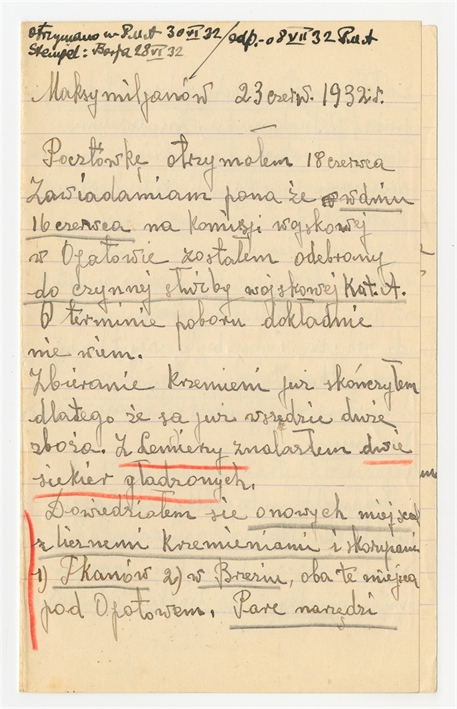 otrzymano w P.M.A 30 VI 32 / odp. - 08 VII 32 P.M.A
Stempel: 28 VI 32
Maksymiljanów 23 czerw. 1932 r.
Pocztówkę otrzymałem 18 czerwca
Zawiadamiam pana że w dniu
16 czerwca na komisji wojskowej
w Opatowie zostałem odebrany
do czynnej służby wojskowej Kat. A.
O terminie poboru dokładnie
nie wiem.
Zbieranie krzemieni już skończyłem
dlatego że są już wszędzie duże
zboża. Z znalazłem dwie
siekier gładzonych.
Dowiedziałem sie o nowych miejscach
z licznemi krzemieniami i skorupami
1) Tkanów 2) w Brzeziu, oba te miejsca
pod Opatowem. Pare narzędzi